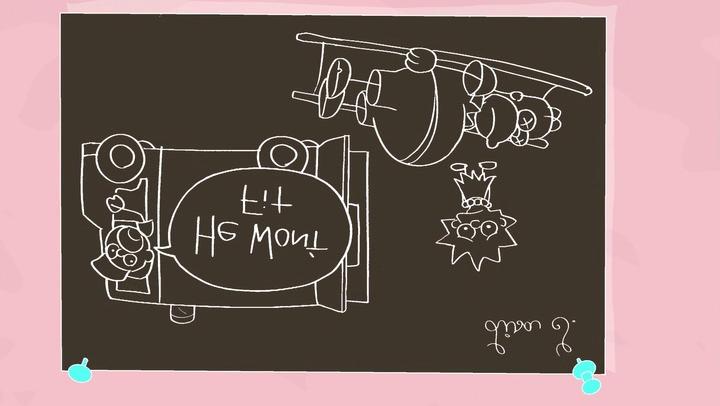 He Wont
Fit